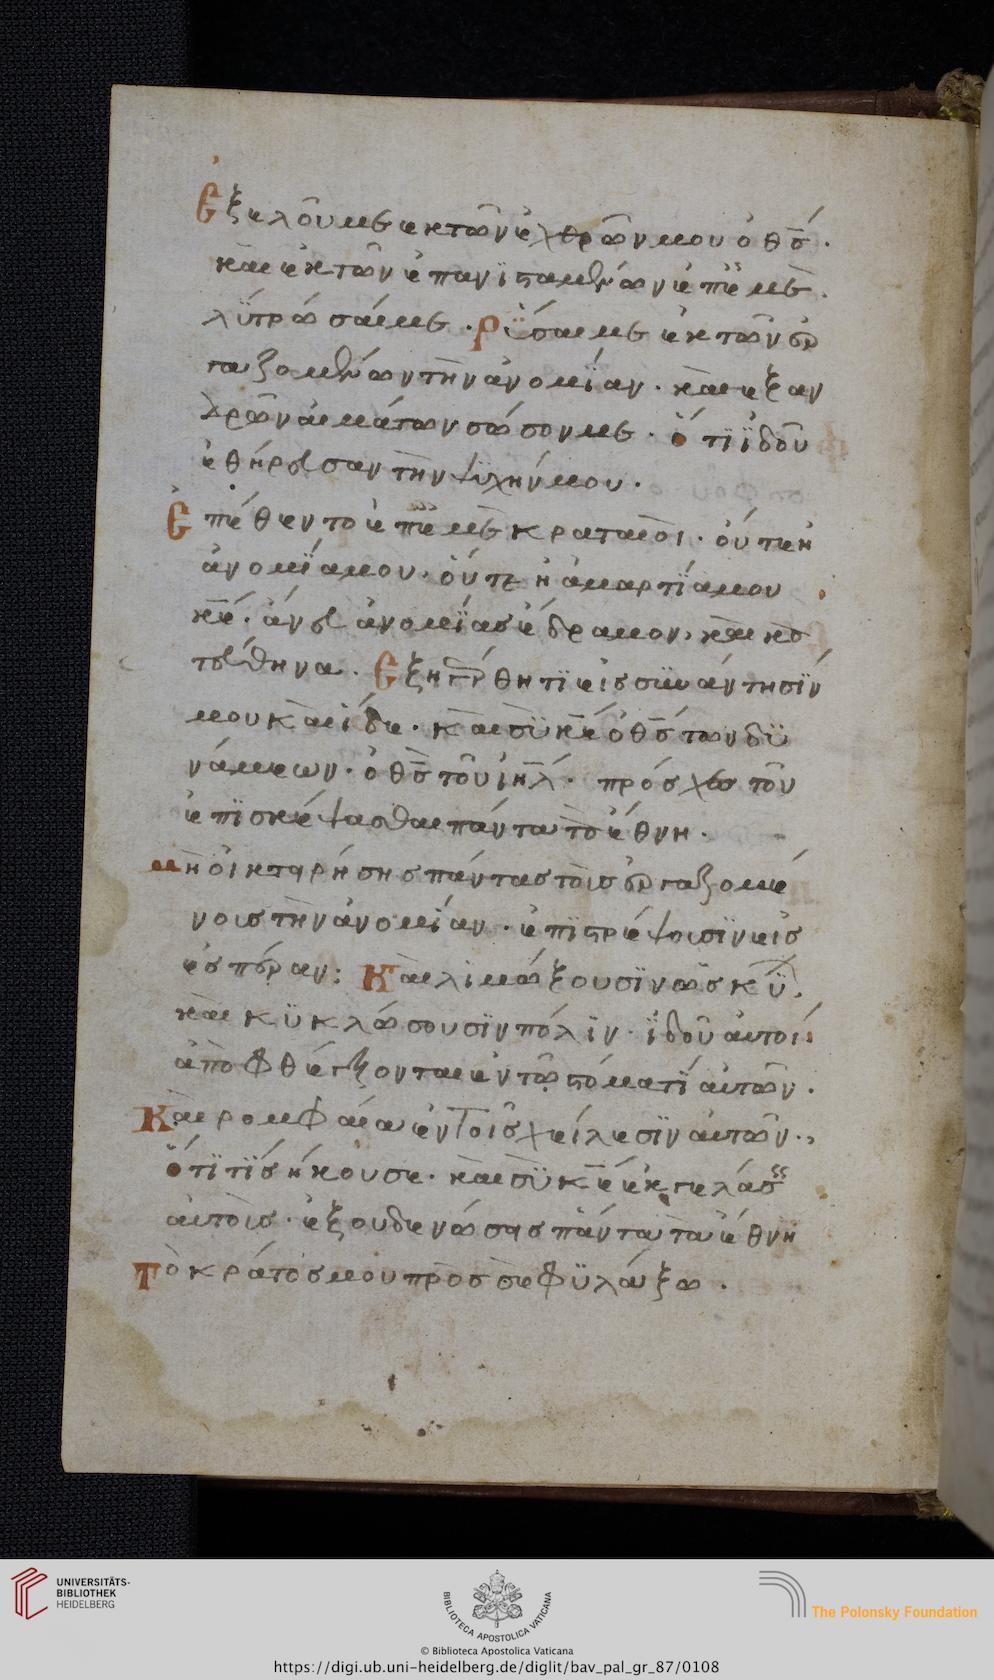 Ἐξελοῦ με ἐκ τῶν ἐχθρῶν μου ὁ θς.
καὶ ἐκ τῶν ἐπανϊσταμένων ἐπ ἐμὲ.
λύτρωσαί με. Ρῦσαι με ἐκ τῶν ἐρ
γαζομένων τὴν ἀνομίαν. καὶ ἐξ αν
δρῶν αἱμάτων σῶσον με. ὅτι ϊδοῦ
ἐθήρευσαν τὴν ψυχήν μου.
Ἐπέθεντο ἐπ ἐμὲ κραταιοὶ. οὔτε ἡ
ἀνομία μου. οὔτε ἡ ἁμαρτία μου
κε. ἄνευ ἀνομίας ἔδραμον, καὶ κα
τεύθηνα. Ἐξηγέρθητι εἰς συνάντησίν
μου καὶ ἴδε. καὶ σὺ κε ὁ θς τῶν δϋ
νάμεων. ὁ θς τοῦ ιηλ. πρόσχες τοῦ
ἐπισκέψασθαι πάντα τὰ ἔθνη.
μὴ οἰκτιρήσης πάντας τοὶς ἐργαζομέ
νοις τὴν ἀνομίαν. ἐπιστρέψουσϊν εἰς
ἑσπέραν: Καὶ λιμώξουσϊν ὡς κύ.
καὶ κϋκλώσουσϊν πόλϊν. ϊδοῦ αὐτοὶ
ἀποφθέγξονται ἐν τῶ στόματϊ αὐτῶν.
Καὶ ρομφαία ἐν τοῖς χείλεσϊν αὐτῶν.,
ὅτϊ τίς ἤκουσε. καὶ σὺ κε ἐκγελάση
αὐτοὶς. ἐξουδενώσεις πάντα τὰ ἔθνη
Τὸ κράτος μου πρὸς σὲ φϋλάξω.
UNIVERSITÄTS-
BIBLIOTHEK
HEIDELBERG
BIBLIOTECA APOSTOLICA VATICANA
The Polonsky Foundation
© Biblioteca Apostolica Vaticana
https://digi.ub.uni-heidelberg.de/diglit/bav_pal_gr_87/0108